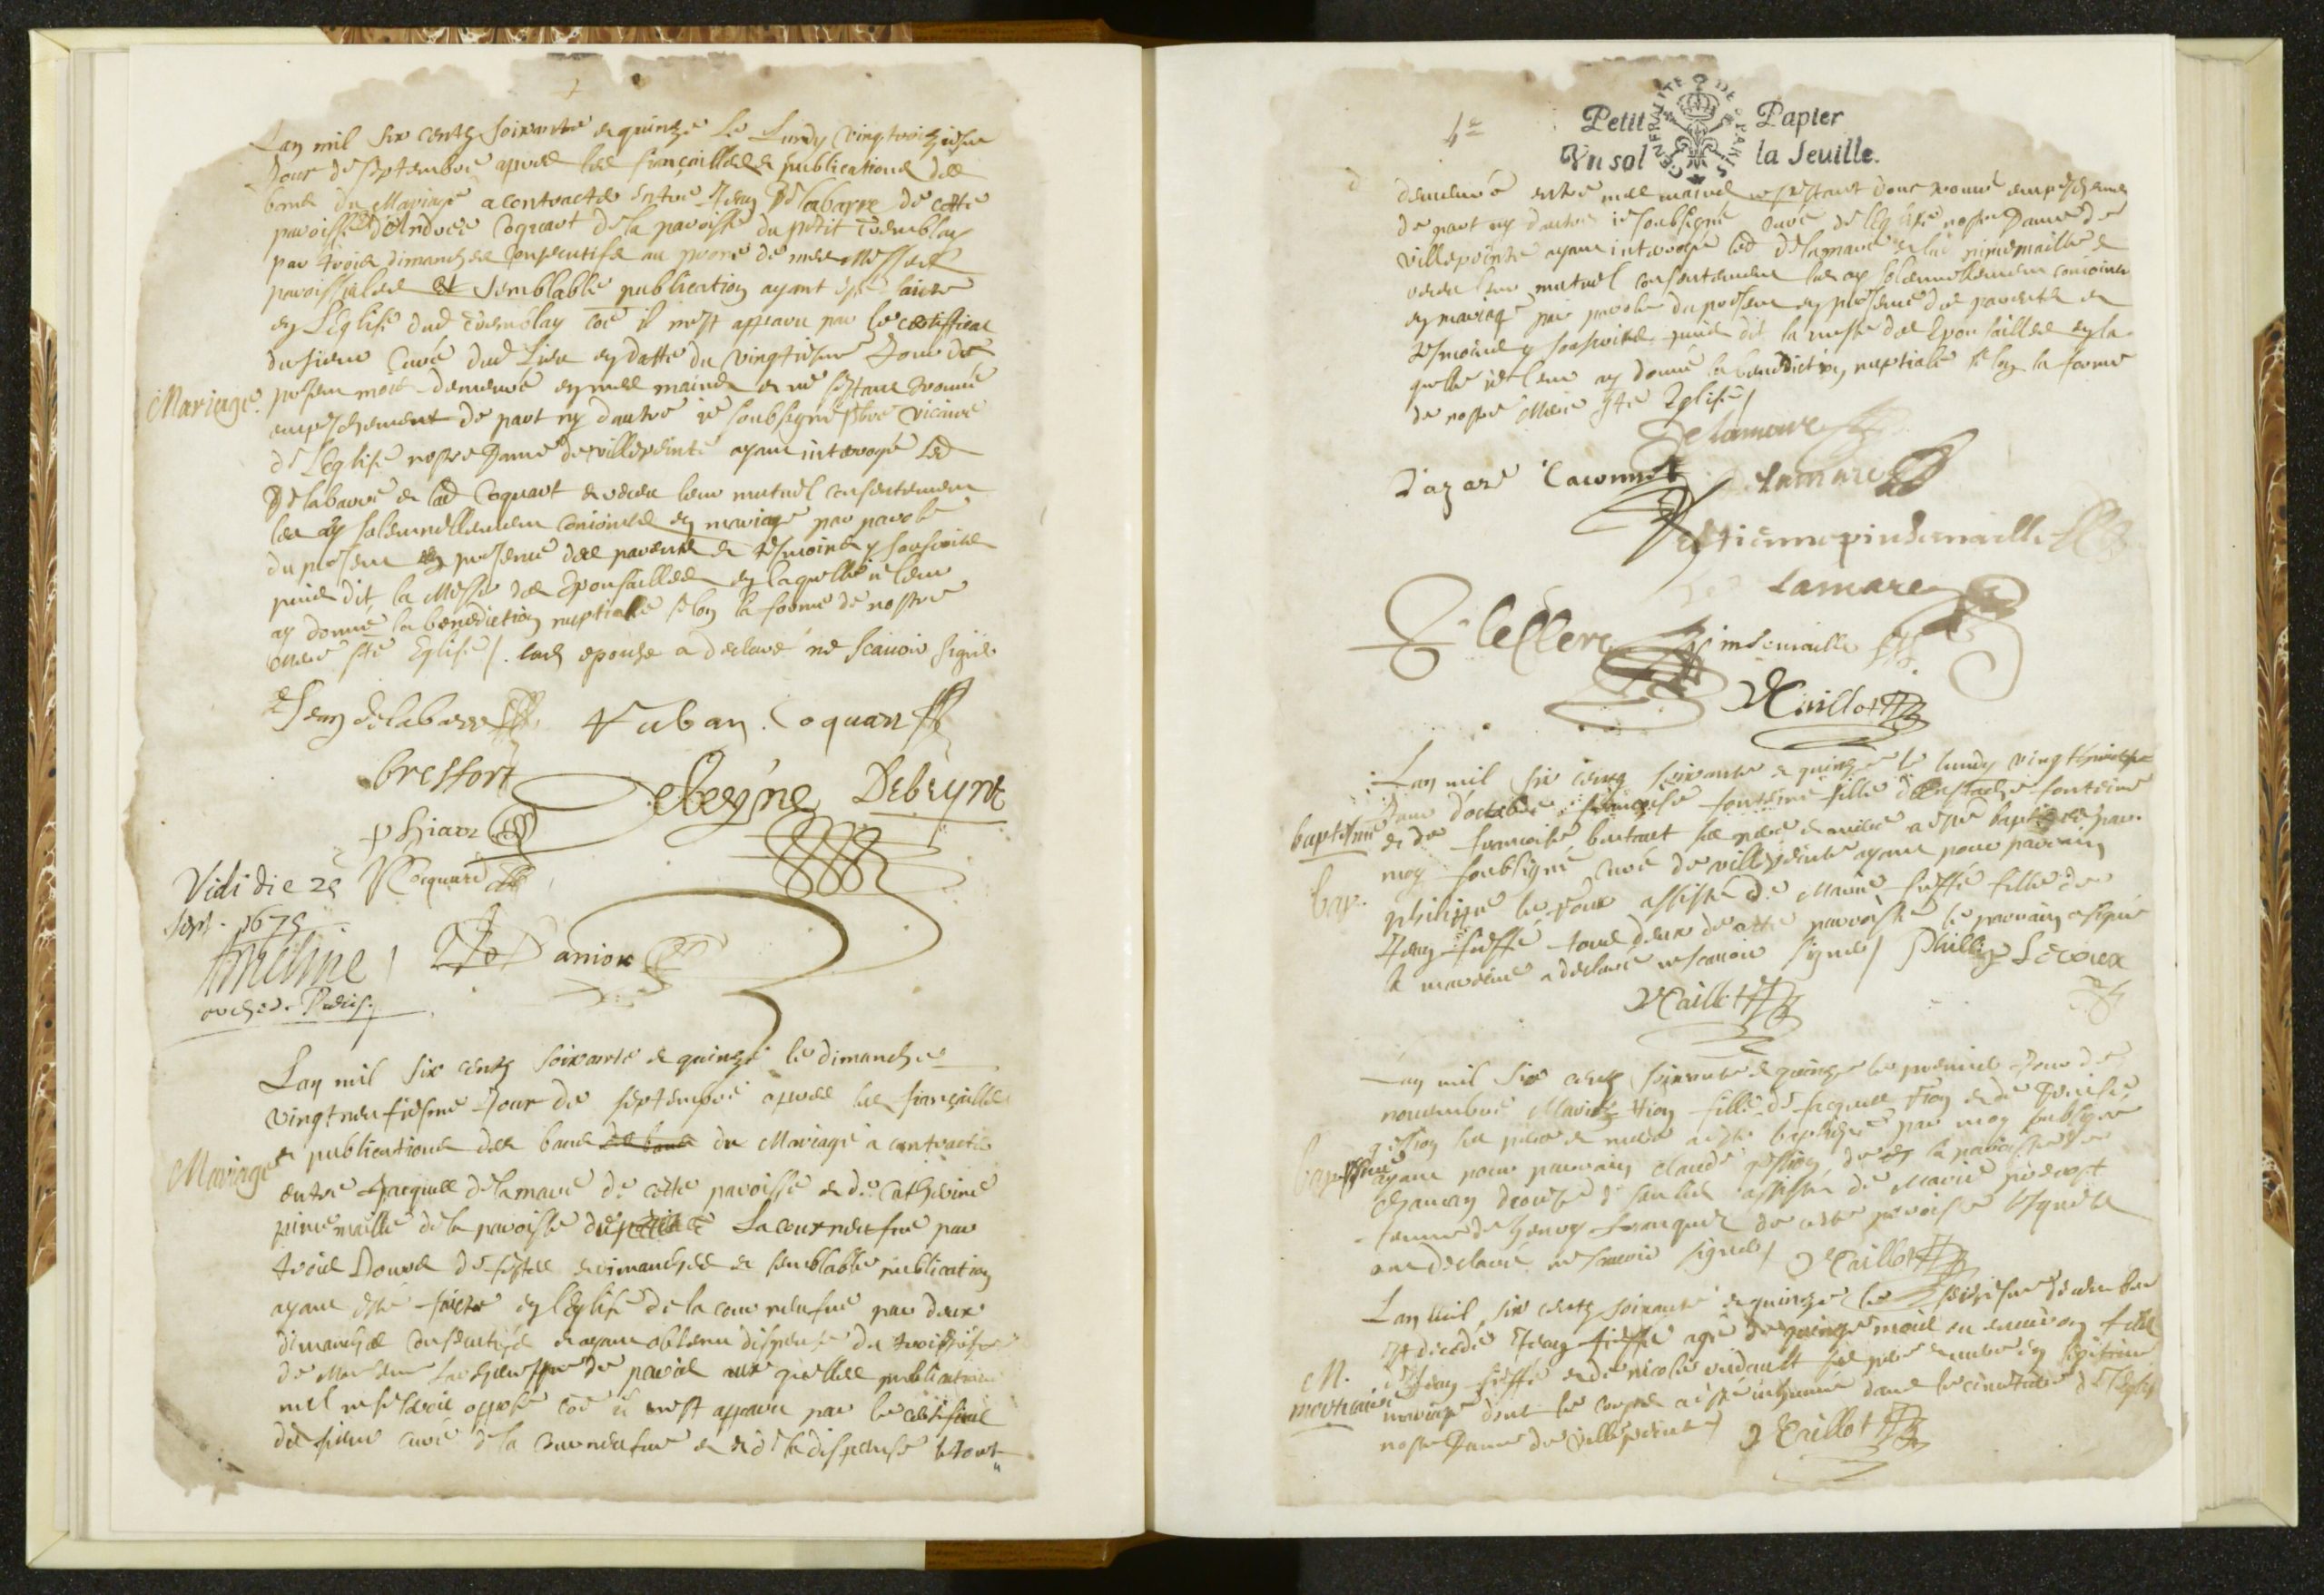 Lan mil six centz soixante et quinze le Lundy vingt troiziesme
Jour de septembre apres les fiançailles et publications des
bans du Mariage a contracter entre Jean Delabarre de cette
paroisse et d'Andrée Coquart de la paroisse du petit Tremblay
par trois dimanches consecutifs au prone de nos Messes
paroissiales et semblable publication ayant esté faicte
en L'Eglise dud Tremblay coe il nous est apparu par le certifficat
du sieur Curé dud Lieu en datte du vingtiesme Jour du
Mariage. present mois demeuré en mes mains et ne s'estant trouvé
empeschement de part ny dautre ie soubsigné pbre vicaire
de L'Eglise nostre Dame de villepeinte ayant interrogé led
Delabarre et lad Coquart et receu leur mutuel consentement
les ay solemnellement conioincts en mariage par parole
du present en presence des parents et tesmoins y souscrits
puis dit la Messe des Epousailles en laquelle ie leur
ay donné la benediction nuptiale selon la forme de nostre
mere ste Eglise /. lad epouse a declaré ne scauoir signer
Jean delabarre Vuban Coquart
bressort
Debeyne Debeyne
p hiaor
Vidi die 25 Cocquard
sept. 1675
Ameline Damior
archid. Paris.
Lan mil six centz soixante et quinze le dimanche
vingt neufiesme Jour de septembre apres les fiançailles
et publications des bans des bans du Mariage a contracter
Mariage entre Jacques Delamare de cette paroisse et de Catherine
pinsemaille de la paroisse du petit La courneufue par
trois Jours de festes et dimanches et semblable publication
ayant esté faicte en l'Eglise de la courneufue par deux
dimanches consecutifs et ayant obtenu dispense du troisiesme
de Monseigneur de paris aux quelles publications
nul ne s'estoit opposé coe il nous est apparu par le certificat
du sieur curé de la courneufue et de la dispense le tout
4e
Petit Papier
Vn sol la feuille.
GENERALITE DE PARIS
demeuré entre mes mains ne s'estant donc trouvé empeschement
de part ny dautre ie soubsigné Curé de l'Eglise nostre Dame de
villepeinte ayant interrogé led Delamare et lad pinsemaille et
receu leur mutuel consentement les ay solemnellement conioincts
en mariage par parole du present en presence des parents et
tesmoins y souscrits puis dit la messe des Epousailles en la
quelle ie leur ay donné la benediction nuptiale selon la forme
de nostre Mere ste Eglise /
Delamare
Lazare Caronnet Delamare
Estienne pinsemaille
De Lamare
leClerc pinsemaille
Caillot
Lan mil six centz soixante et quinze le lundy vingt huictiesme
Jour d'octobre françoise fonteine fille d'Eustache fonteine
baptesme et de francoise butant ses pere et mere a esté baptisée par
moy soubsigné Curé de villepeinte ayant pour parrain
bap. philippe le Roux assisté de Marie fieffé fille de
Jean fieffé tous deux de cette paroisse le parrain a signé
la marraine a declaré ne scauoir signer / Phillip Leroux
Caillot
Lan mil six centz soixante et quinze le premier Jour de
novembre Marie Tion fille de Jacques Tion et de Denise
gission ses pere et mere a esté baptizée par moy soubsigné
baptesme ayant pour parrain Claude gission de la paroisse de
assisté de Marie prevost
femme de henry franquet de cette paroisse lesquels
ont declaré ne scauoir signer / Caillot
Lan mil six centz soixante et quinze le seiziesme decembre
est decedé Jean fieffé agé de quinze mois ou environ fils
M. de Jean fieffé et de nicole rudault ses pere et mere en legitime
mortuaire mariage dont le corps a esté inhumé dans le cimetiere de l'Eglise
nostre Dame de villepeinte / Caillot